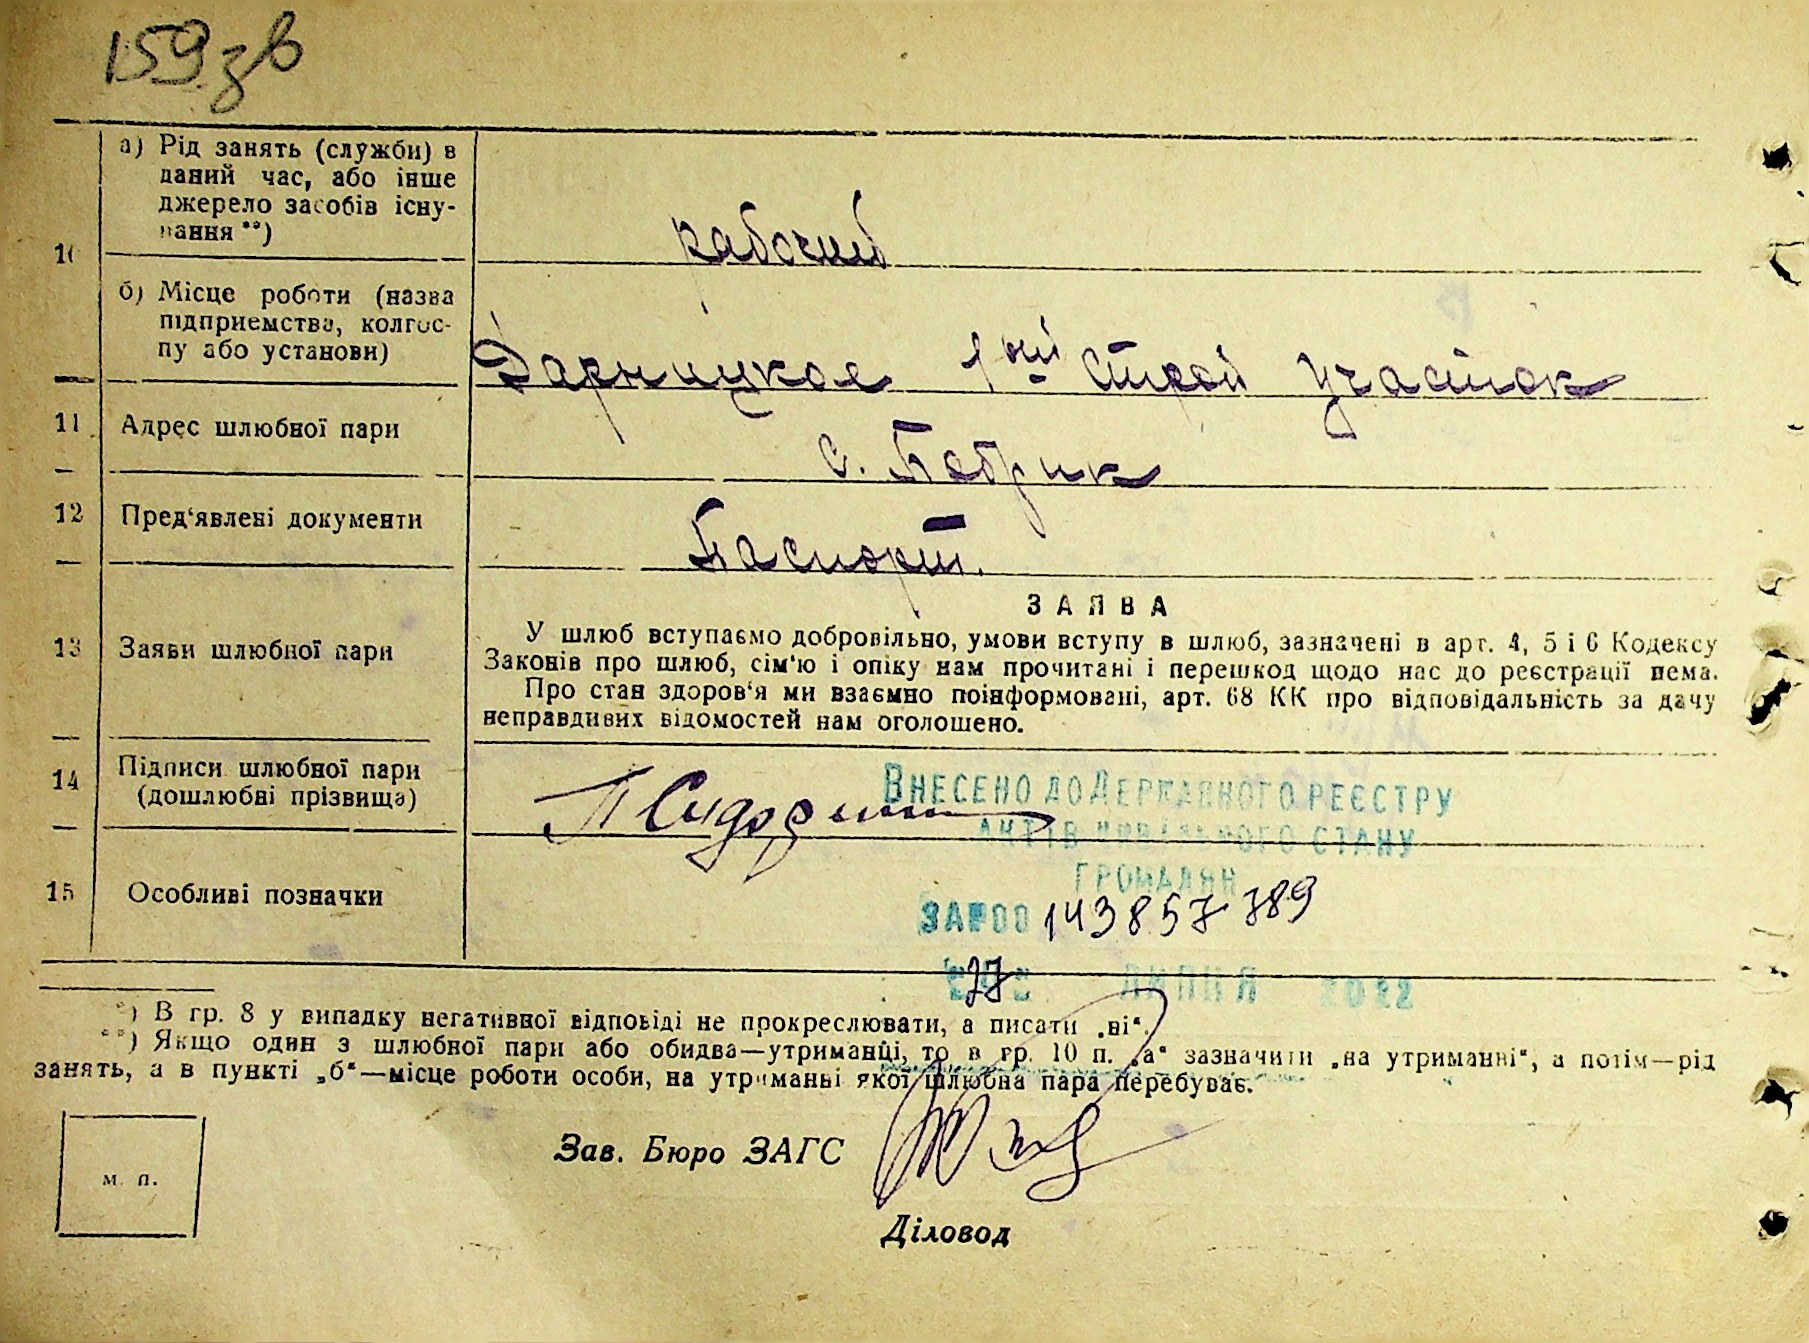 159 зв
а) Рід занять (служби) в
даний час, або інше
джерело засобів існу-
вання **)
рабочий
10
б) Місце роботи (назва
підприємства, колгос-
пу або установи)
Дарницкое 1ый строй участок
11 Адрес шлюбної пари
с. Бобрик
12 Пред'явлені документи
Паспорт.
13 Заяви шлюбної пари
ЗАЯВА
У шлюб вступаємо добровільно, умови вступу в шлюб, зазначені в арт. 4, 5 і 6 Кодексу
Законів про шлюб, сім'ю і опіку нам прочитані і перешкод щодо нас до реєстрації нема.
Про стан здоров'я ми взаємно поінформовані, арт. 68 КК про відповідальність за дачу
неправдивих відомостей нам оголошено.
14 Підписи шлюбної пари
(дошлюбні прізвища)
ВНЕСЕНО ДО ДЕРЖАВНОГО РЕЄСТРУ
АКТІВ ЦИВІЛЬНОГО СТАНУ
ГРОМАДЯН
15 Особливі позначки
ЗА №00 143857789
27 ЛИПНЯ 2022
*) В гр. 8 у випадку негативної відповіді не прокреслювати, а писати „ні“.
**) Якщо один з шлюбної пари або обидва—утриманці, то в гр. 10 п. „а“ зазначити „на утриманні“, а потім—рід
занять, а в пункті „б“—місце роботи особи, на утриманні якої шлюбна пара перебуває.
Зав. Бюро ЗАГС
м. п.
Діловод